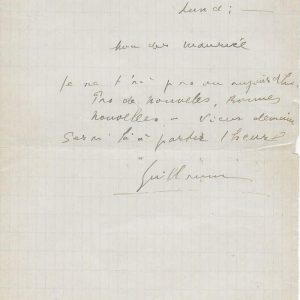 Lundi —
Mon cher Maurice
Je ne t'ai pas vu aujourd'hui
Pas de nouvelles, bonnes
nouvelles — Viens demain
Serai là à partir 1 heure
Guillaume